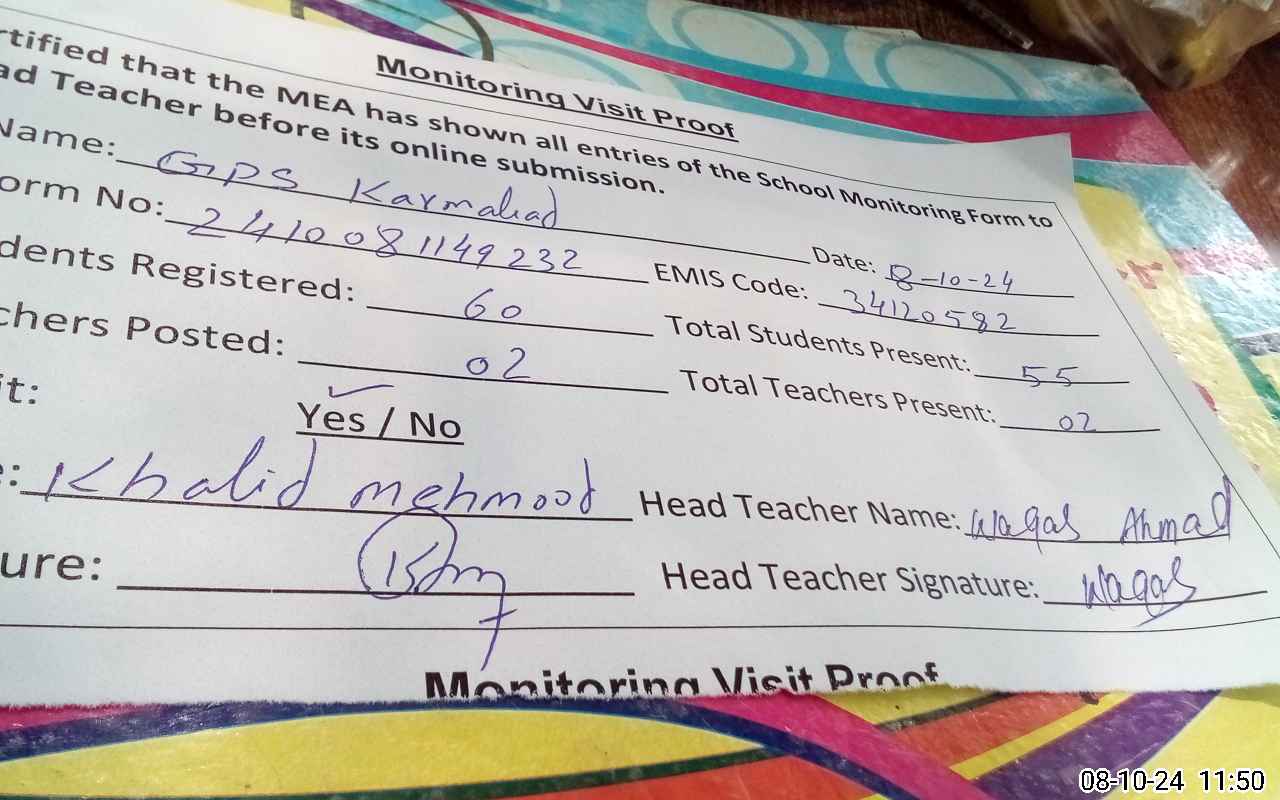 Monitoring Visit Proof
rtified that the MEA has shown all entries of the School Monitoring Form to
ad Teacher before its online submission.
Name: GPS Karmabad Date: 8-10-24
orm No: 2410081149232 EMIS Code: 34120582
dents Registered: 60 Total Students Present: 55
chers Posted: 02 Total Teachers Present: 02
it: Yes / No
e: Khalid mehmood Head Teacher Name: Waqas Ahmad
ure: Head Teacher Signature: Waqas
Monitoring Visit Proof
08-10-24 11:50